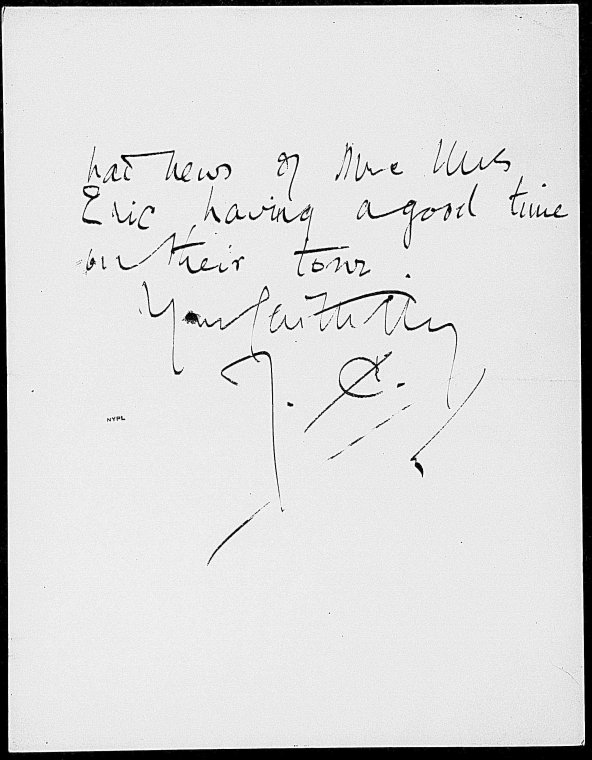 had news of Mr & Mrs
Eric having a good time
on their tour.
Yours faithfully
J. C.
NYPL